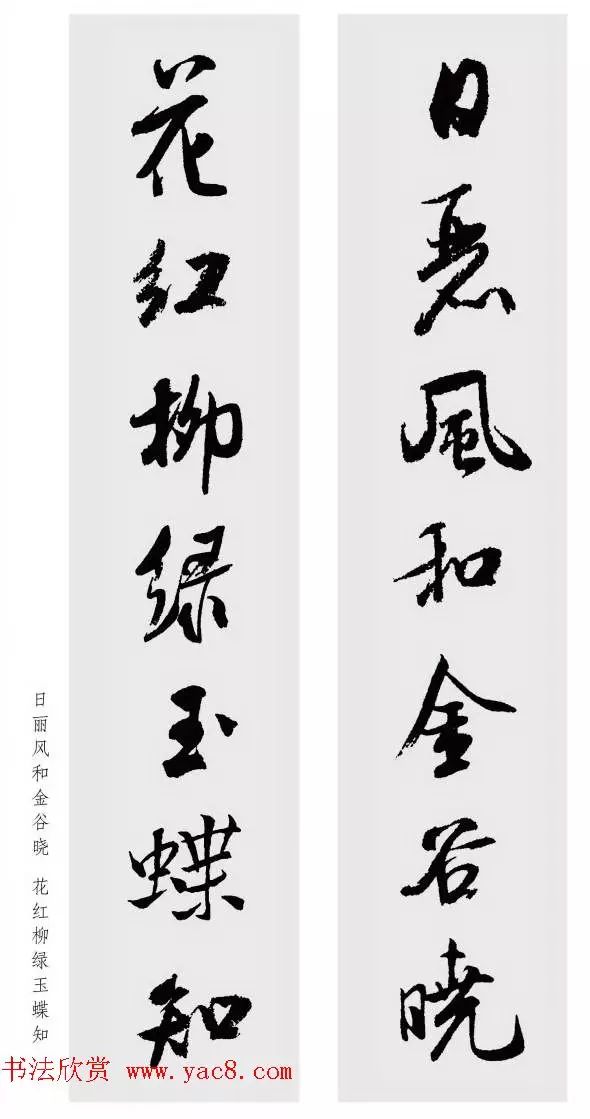 日麗風和金谷曉
花红柳绿玉蝶知
日丽风和金谷晓 花红柳绿玉蝶知
书法欣赏 www.yac8.com